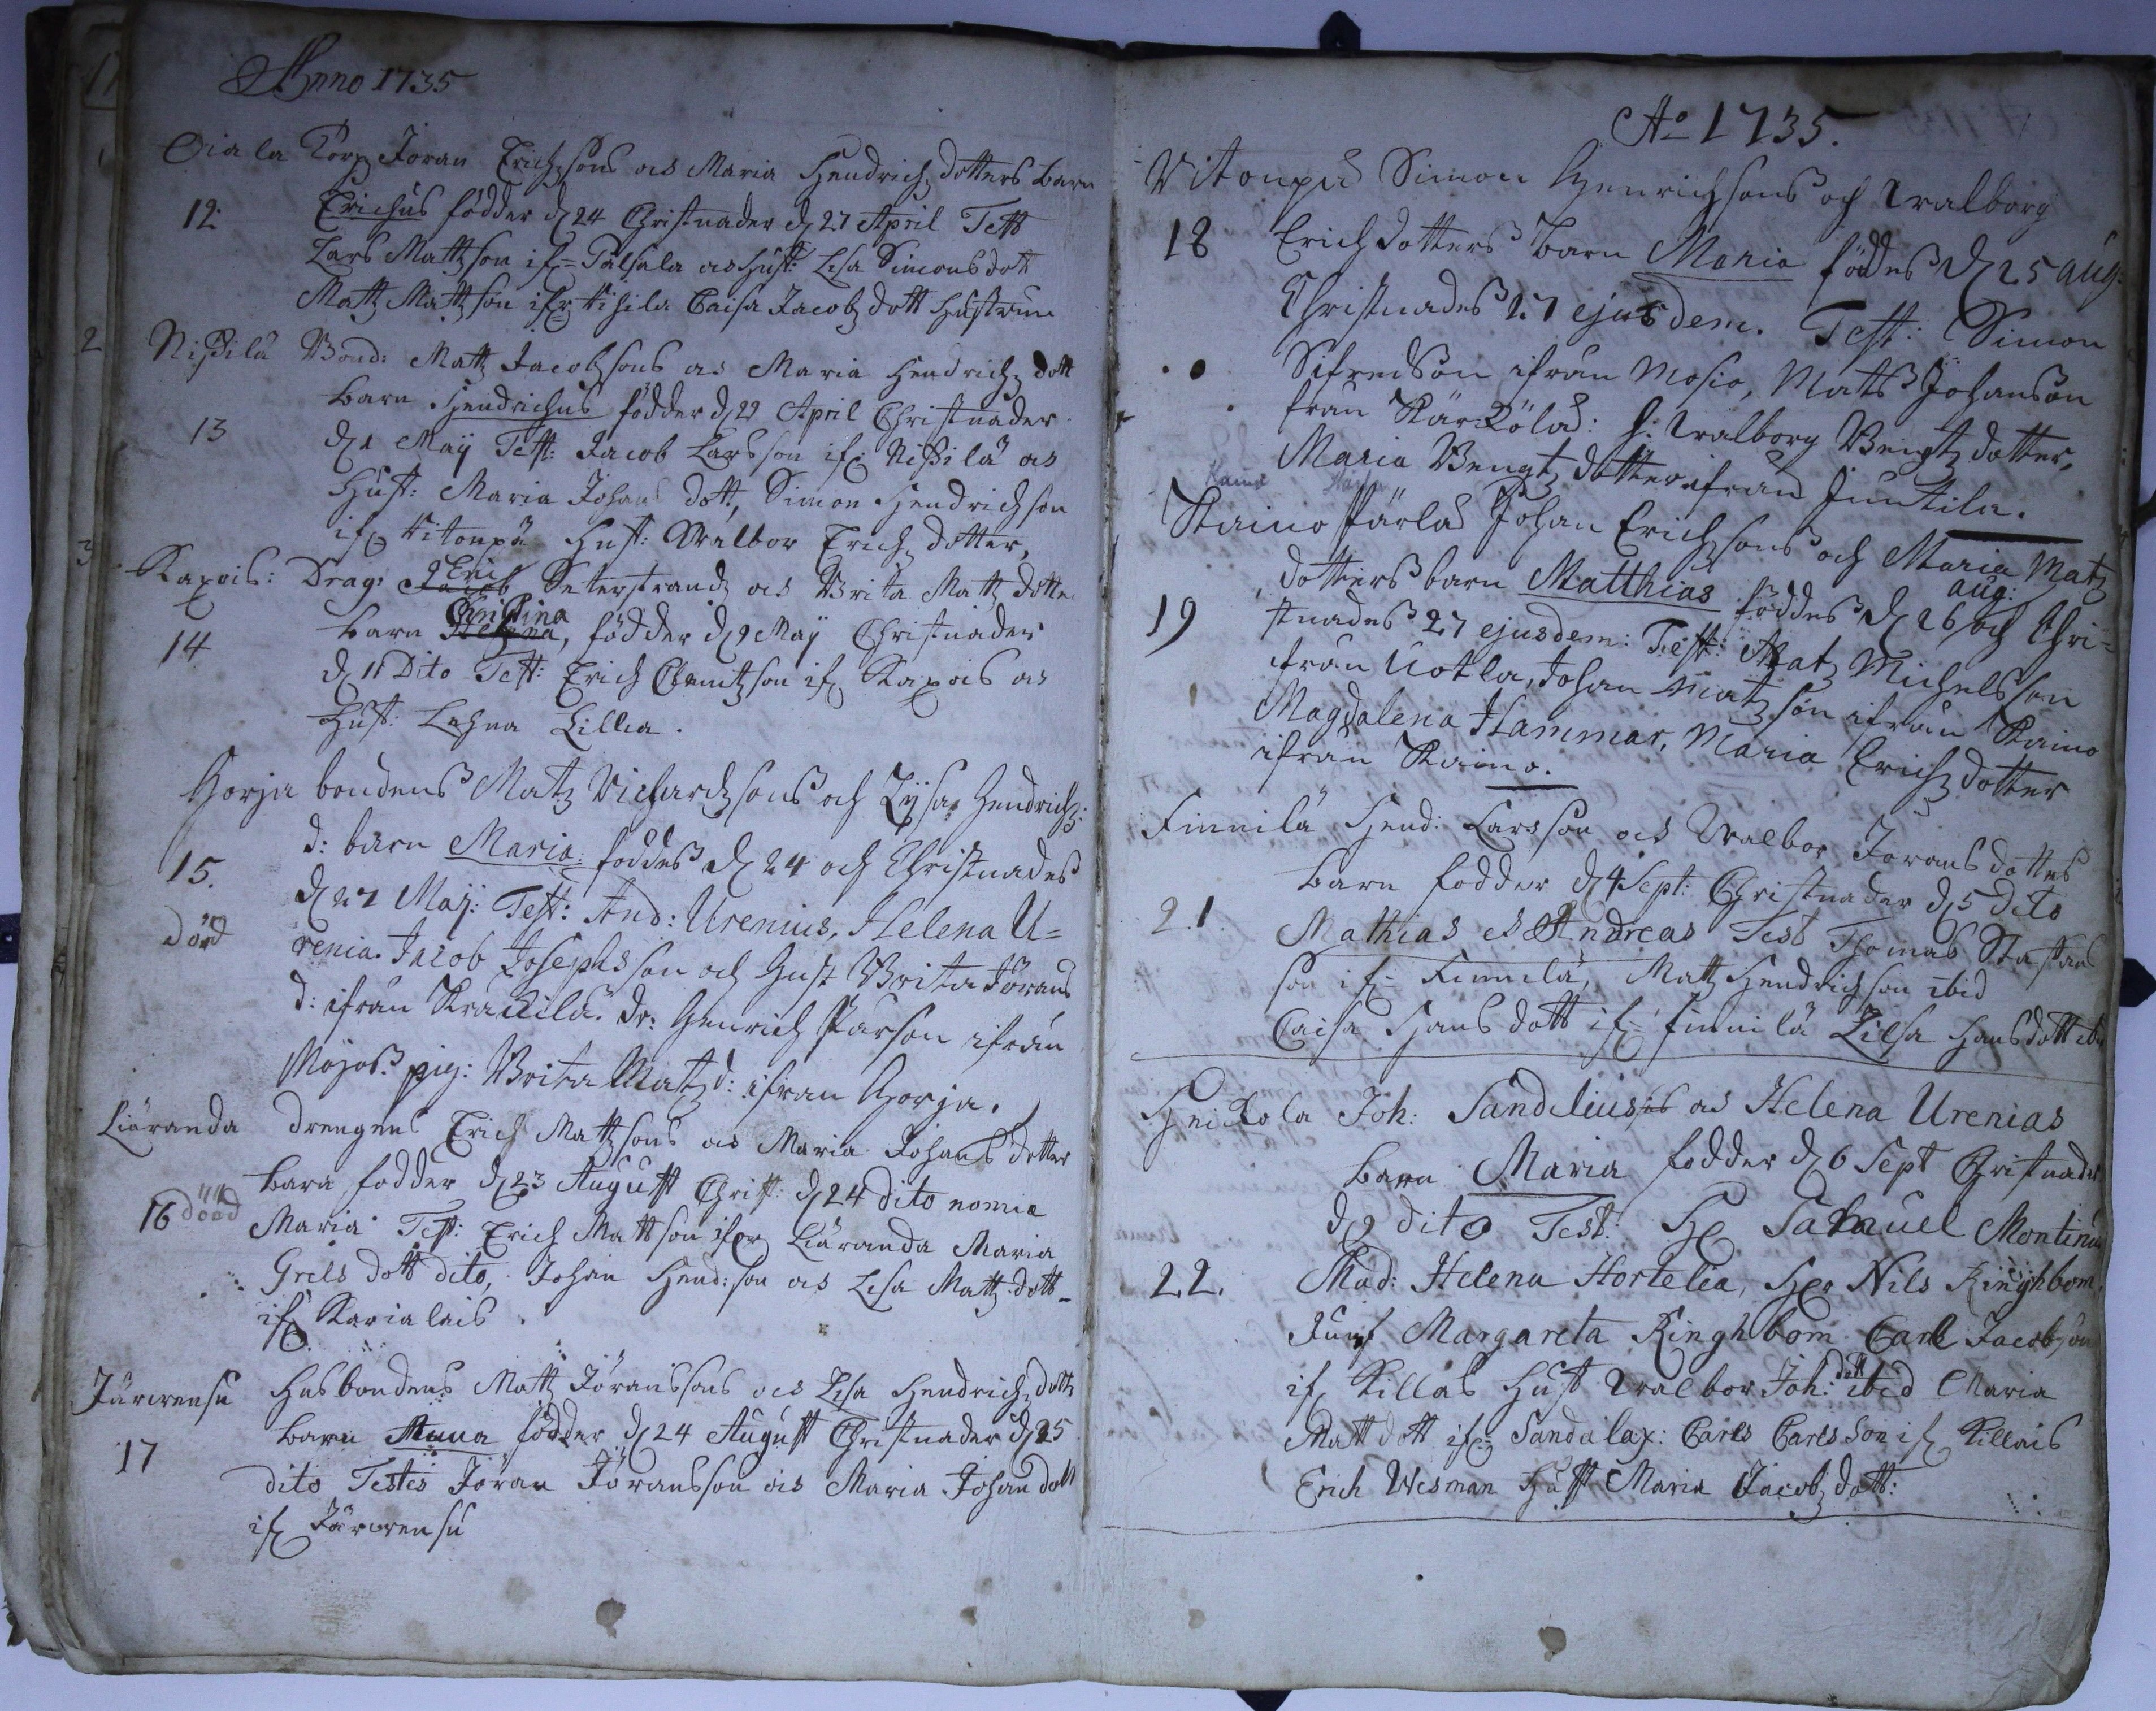 Anno 1735
Oiala Torp Joran Erichsons as Maria Hendrichz dotters barn
12. Erichus födder d 24 Christnader d 27 April Test
Lars Mattzson if= Palsala as Hust: Lisa Simonsdott
Matz Mattzson ifr Caisa Jacobz dott Hustrun
2 Nissilä Bond: Matz Jacobsons as Maria Hendrichz dott
barn Hendrichus födder d 29 April Christnader
13 d 1 Maÿ Test: Jacob Larsson if Nissilä as
Hust: Maria Johans dott, Simon Hendrichson
if Vitonpä Hust: Walbor Erichz dotter,
3 Kaxois: Drag: Jacob Erich Seterstrandz as Brita Matz dotte
14 barn Helena Christina, födder d 9 Maÿ Christnader
d 11 Dito Test: Erich Clemitzson if Kaxois as
Hust: Lehna Lillia.
Horja bondens Matz Richardzsons och Lÿsa Hendrichz:
d: barn Maria: foddes d 24 och Christnades
15. d 27 Maÿ: Test: And: Urenius, Helena U=
död renia. Jacob Josephsson och Hust Brita Jörans
d: ifrån Krackila. dr: Henrich Pärson ifrån
Mojos. pig: Brita Matz d: ifran Horja.
Liäranda drengens Erich Mattzsons as Maria Johans dotter
barn fodder d 23 August Christ: d 24 dito nomie
16 dööd Maria Test: Erich Mattson ifr Liäranda Maria
Grels dott dito, Johan Hend:son as Lisa Mattz dott-
if Karialais
Järwensu Husbondens Mattz Joranssons as Lisa Hendrichz dott
barn Anna födder d 24 August Christnader d 25
17 dito Testes Joran Joransson as Maria Johan dott
if Järwensu
Ao 1735.
Vitonpä Simon Henrichsons och Walborg
18 Erichdotters barn Maria föddes d 25 aug:
Christnades 27 ejusdem. Test: Simon
Sifredson ifrån Mosio, Matts Johanson
från Kärkölä: h: Walborg Bengtz dotter,
Maria Bengtz dotter ifrån Juntila.
Kaino
Kaino Pärla Johan Erichsons och Maria Matz
dotters barn Matthias föddes d 26 aug: och Chri=
19 stnades 27 ejusdem: Test: Matz Michelsson
ifrån Uotla, Johan Matzson ifrån Kaino
Magdalena Hammar, Maria Erichz dotter
ifrån Kaino.
Finnilä Hend: Larsson as Walbor Jorans dotters
barn fodder d 4 Sept: Christnader d 5 dito
21. Mathias et Andreas Test Thomas Staffans
son if= Finnilä, Matz Hendrichson ibid
Caisa Hansdott if= finnilä Lilsa Hansdott ibi
Heikola Joh: Sandelius as Helena Urenias
barn Maria fodder d 6 Sept Christnader
d 9 dito Test: H Samuel Montinus
22. Mad: Helena Hortelia, Hr Nils Ringhbom,
Junf Margareta Ringhbom Carl Jacobson
if Killais Hust Walbor Joh: dott ibid Maria
Matt dott if= Sandalax: Carls Carlsson if Killais
Erich Wesman Hust Maria Jacobz dott: